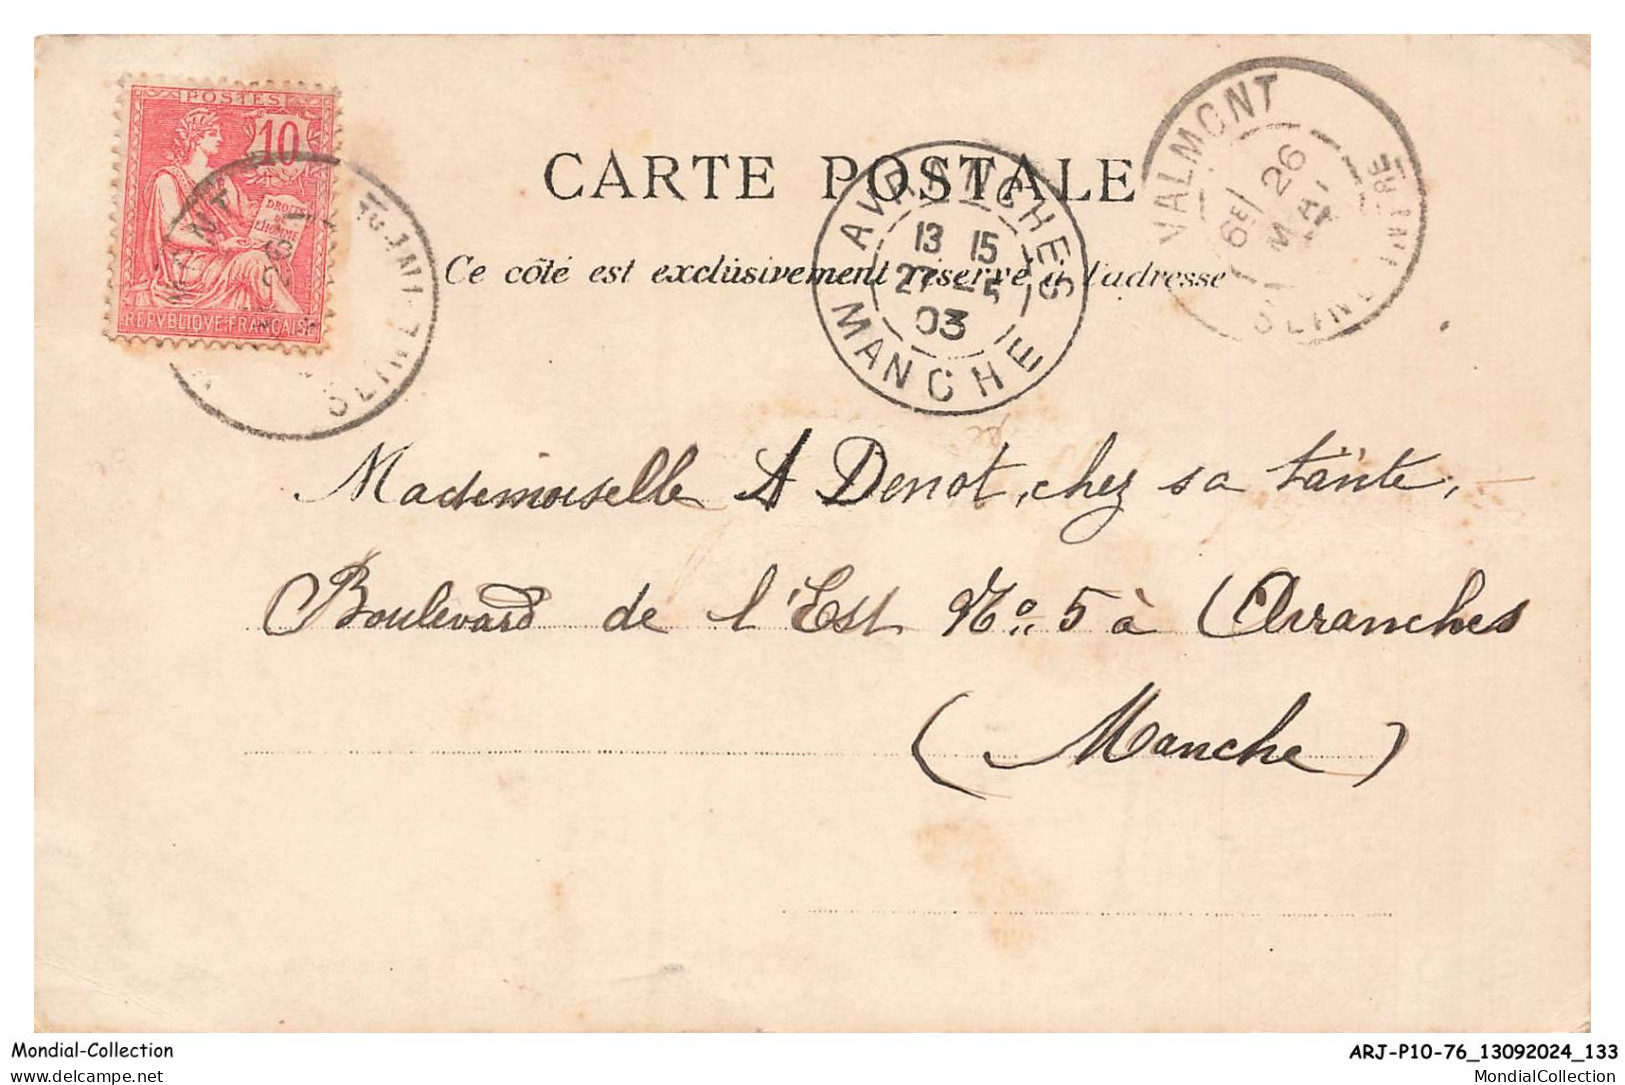 POSTES
10
DROITS
DE
L'HOMME
REPVBLIQVE FRANÇAISE
VALMONT
6E 26
MAI
SEINE INFRE
CARTE POSTALE
AVRANCHES
13 15
27 - 5
03
MANCHE
Ce côté est exclusivement réservé à l'adresse
Mademoiselle A Denot, chez sa tante,
Boulevard de l'Est No 5 à Avranches
(Manche)
Mondial-Collection
ARJ-P10-76_13092024_133
jamet
MondialCollection